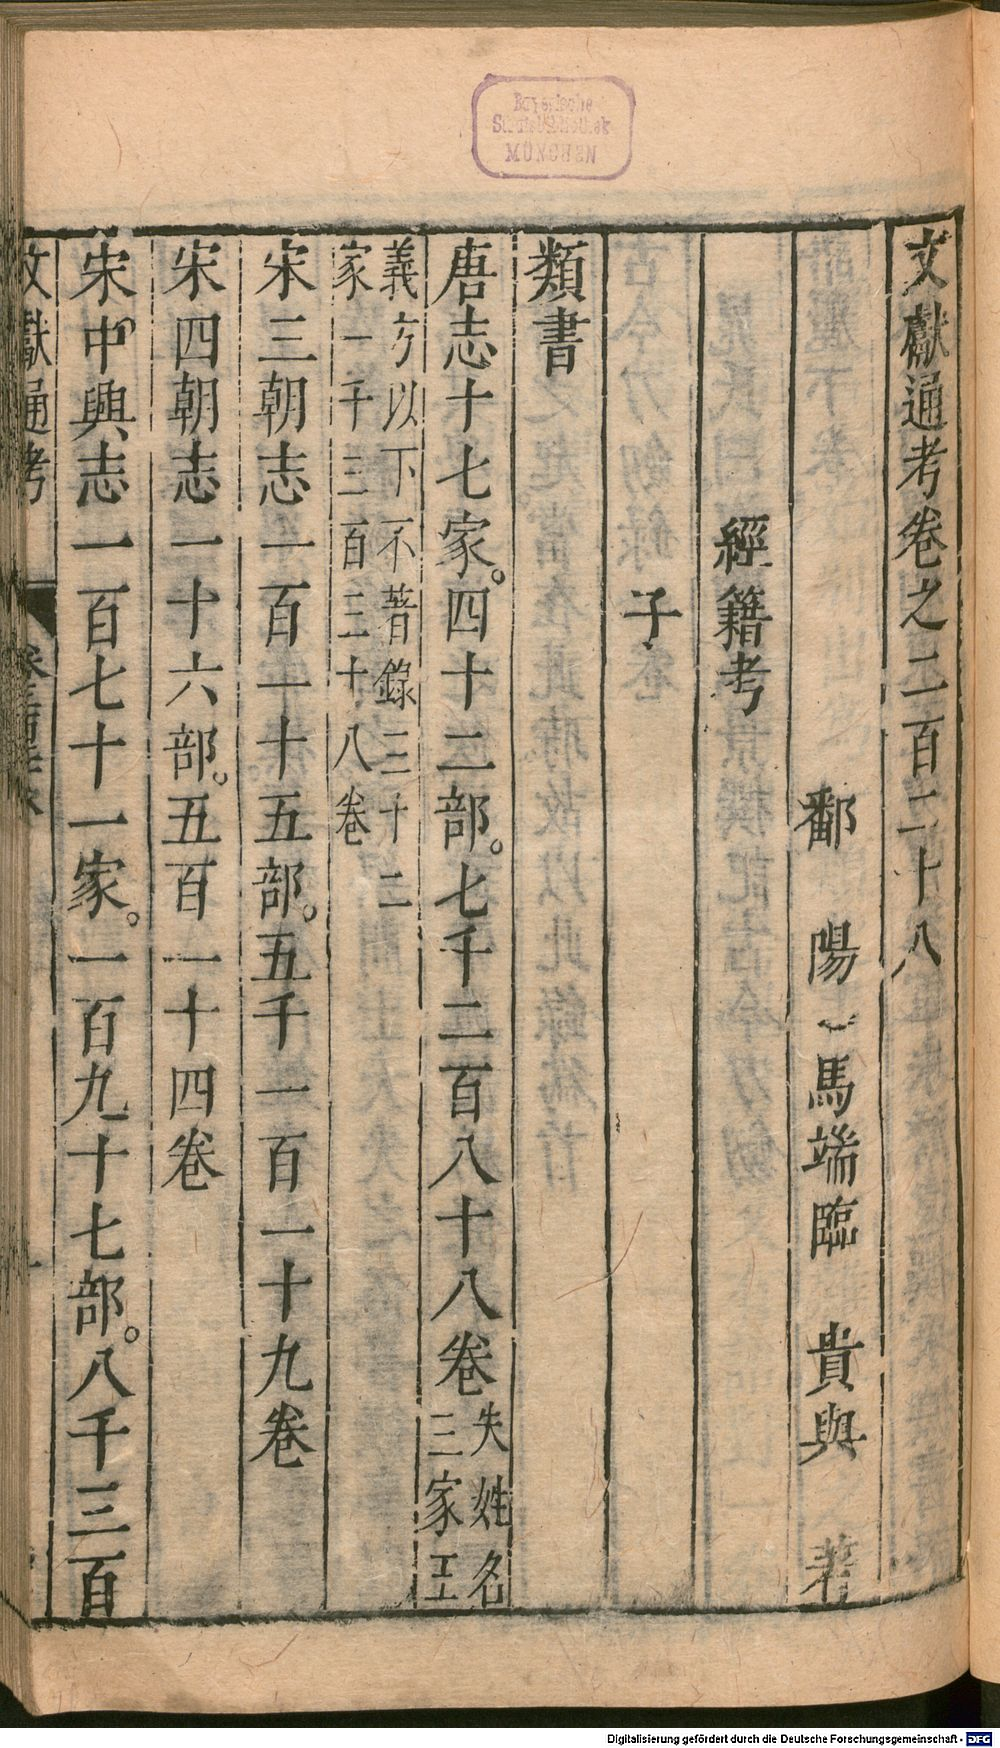 Bayerische
Staatsbibliothek
MÜNCHEN
文獻通考卷之二百二十八
鄱陽馬端臨貴與著
經籍考
子
類書
唐志十七家。四十二部。七千二百八十八卷失姓名
三家王
義方以下不著錄三十二
家一千三百三十八卷
宋三朝志一百一十五部。五千一百一十九卷
宋四朝志一十六部。五百一十四卷
宋中興志一百七十一家。一百九十七部。八千三百
文獻通考
Digitalisierung gefördert durch die Deutsche Forschungsgemeinschaft - DFG